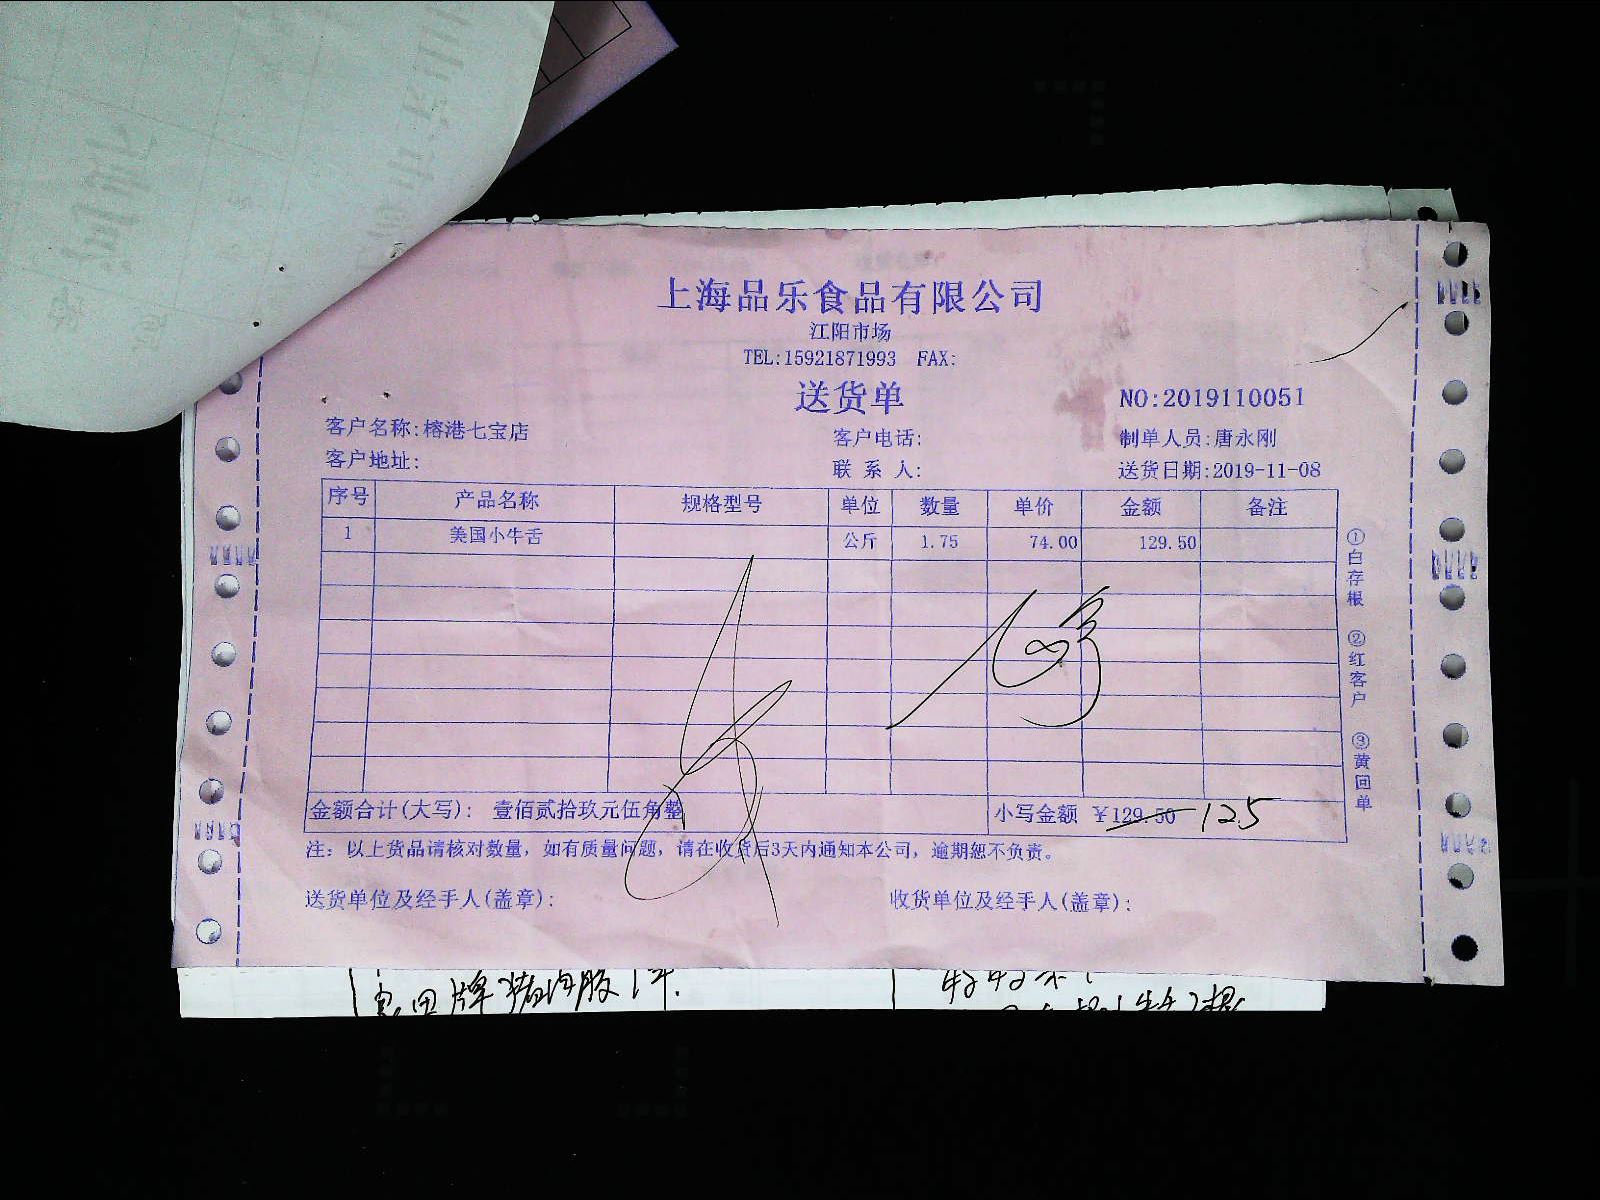 上海品乐食品有限公司
江阳市场
TEL:15921871993 FAX:
送货单
NO:2019110051
客户名称:榕港七宝店 客户电话: 制单人员:唐永刚
客户地址: 联系人: 送货日期:2019-11-08
序号 产品名称 规格型号 单位 数量 单价 金额 备注
1 美国小牛舌 公斤 1.75 74.00 129.50
金额合计(大写): 壹佰贰拾玖元伍角整 小写金额 ¥129.50 125
注: 以上货品请核对数量，如有质量问题，请在收货后3天内通知本公司，逾期恕不负责。
送货单位及经手人(盖章): 收货单位及经手人(盖章):
①白存根 ②红客户 ③黄回单